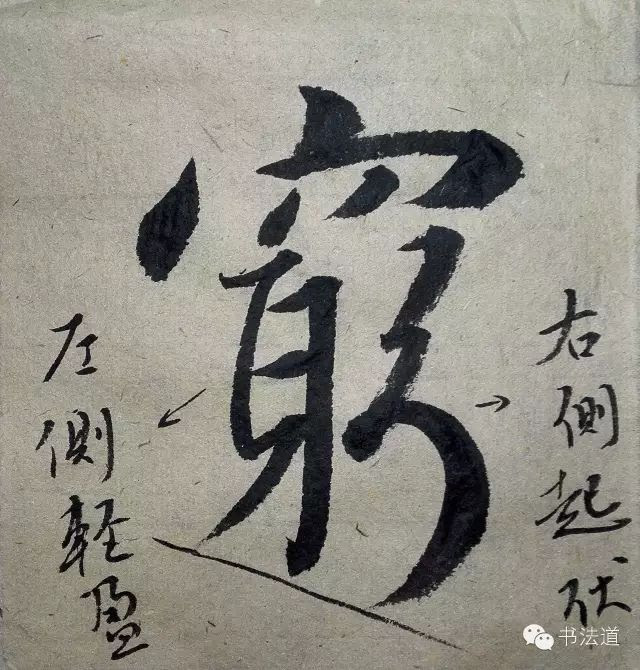 窮
右側起伏
左側軽盈
书法道